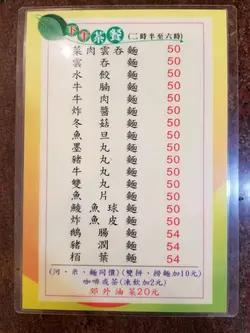 下午茶餐 (二時半至六時)
菜肉雲吞麵 50
雲吞麵 50
水餃麵 50
牛腩麵 50
牛肉麵 50
炸醬麵 50
冬菇麵 50
魚旦麵 50
墨丸麵 50
牛丸麵 50
雙丸麵 50
魚片麵 50
鯪魚球麵 50
炸魚皮麵 50
鵝腸麵 54
豬潤麵 54
栢葉麵 54
(河、米、麵同價)(雙拼、撈麵加10元)
咖啡或茶(凍飲加2元)
郊外油菜20元